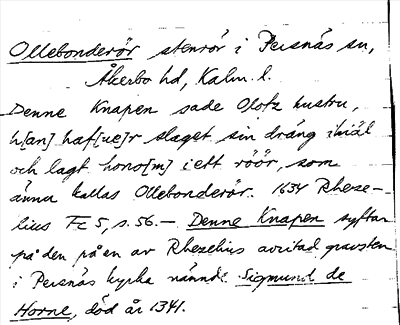 Ollebonderör stenrör i Persnäs sn,
Åkerbo hd, Kalm. l.
Denne Knapen sade Olofz hustru,
h[an] haf[ue]r slaget sin dräng ihiäl
och lagt hono[m] i ett röör, som
ännu kallas Ollebonderör. 1634 Rheze-
lius Fc 5, s. 56. — Denne Knapen syftar
på den på en av Rhezelius avritad gravsten
i Persnäs kyrka nämnde Sigmund de
Horne, död år 1341.